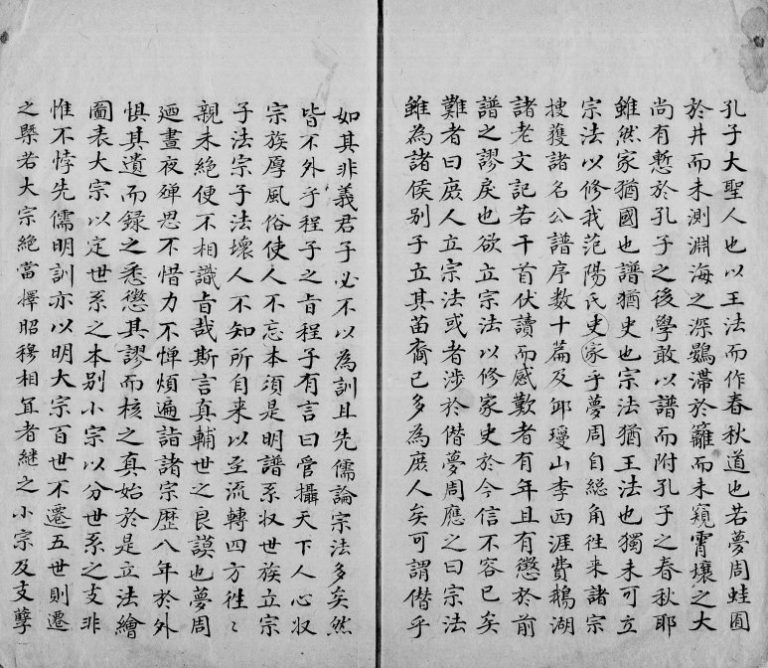 孔子大聖人也以王法而作春秋道也若夢周蛙囿
於井而未測淵海之深鷃滯於籬而未窺霄壤之大
尚有慙於孔子之後學敢以譜而附孔子之春秋耶
雖然家猶國也譜猶史也宗法猶王法也獨未可立
宗法以修我范陽氏史家乎夢周自縂角徃来諸宗
搜獲諸名公譜序数十篇及邱瓊山李西涯費鵝湖
諸老文記若干首伏讀而感歎者有年且有懲於前
譜之謬戾也欲立宗法以修家史於今信不容已矣
難者曰庶人立宗法或者涉於僭夢周應之曰宗法
雖為諸侯别子立其苗裔已多為庶人矣可謂僭乎
如其非義君子必不以為訓且先儒論宗法多矣然
皆不外乎程子之㫖程子有言曰管攝天下人心収
宗族厚風俗使人不忘本須是明譜系収世族立宗
子法宗子法壊人不知所自来以至流轉四方徃〻
親未絶便不相識㫖哉斯言真輔世之良謨也夢周
廼晝夜殫思不惜力不憚煩遍詣諸宗歴八年於外
惧其遺而録之悉懲其謬而核之真始於是立法繪
圖表大宗以定世系之本别小宗以分世系之支非
惟不悖先儒明訓亦以明大宗百世不遷五世則遷
之㬎若大宗絶當擇昭穆相宜者継之小宗及支孽